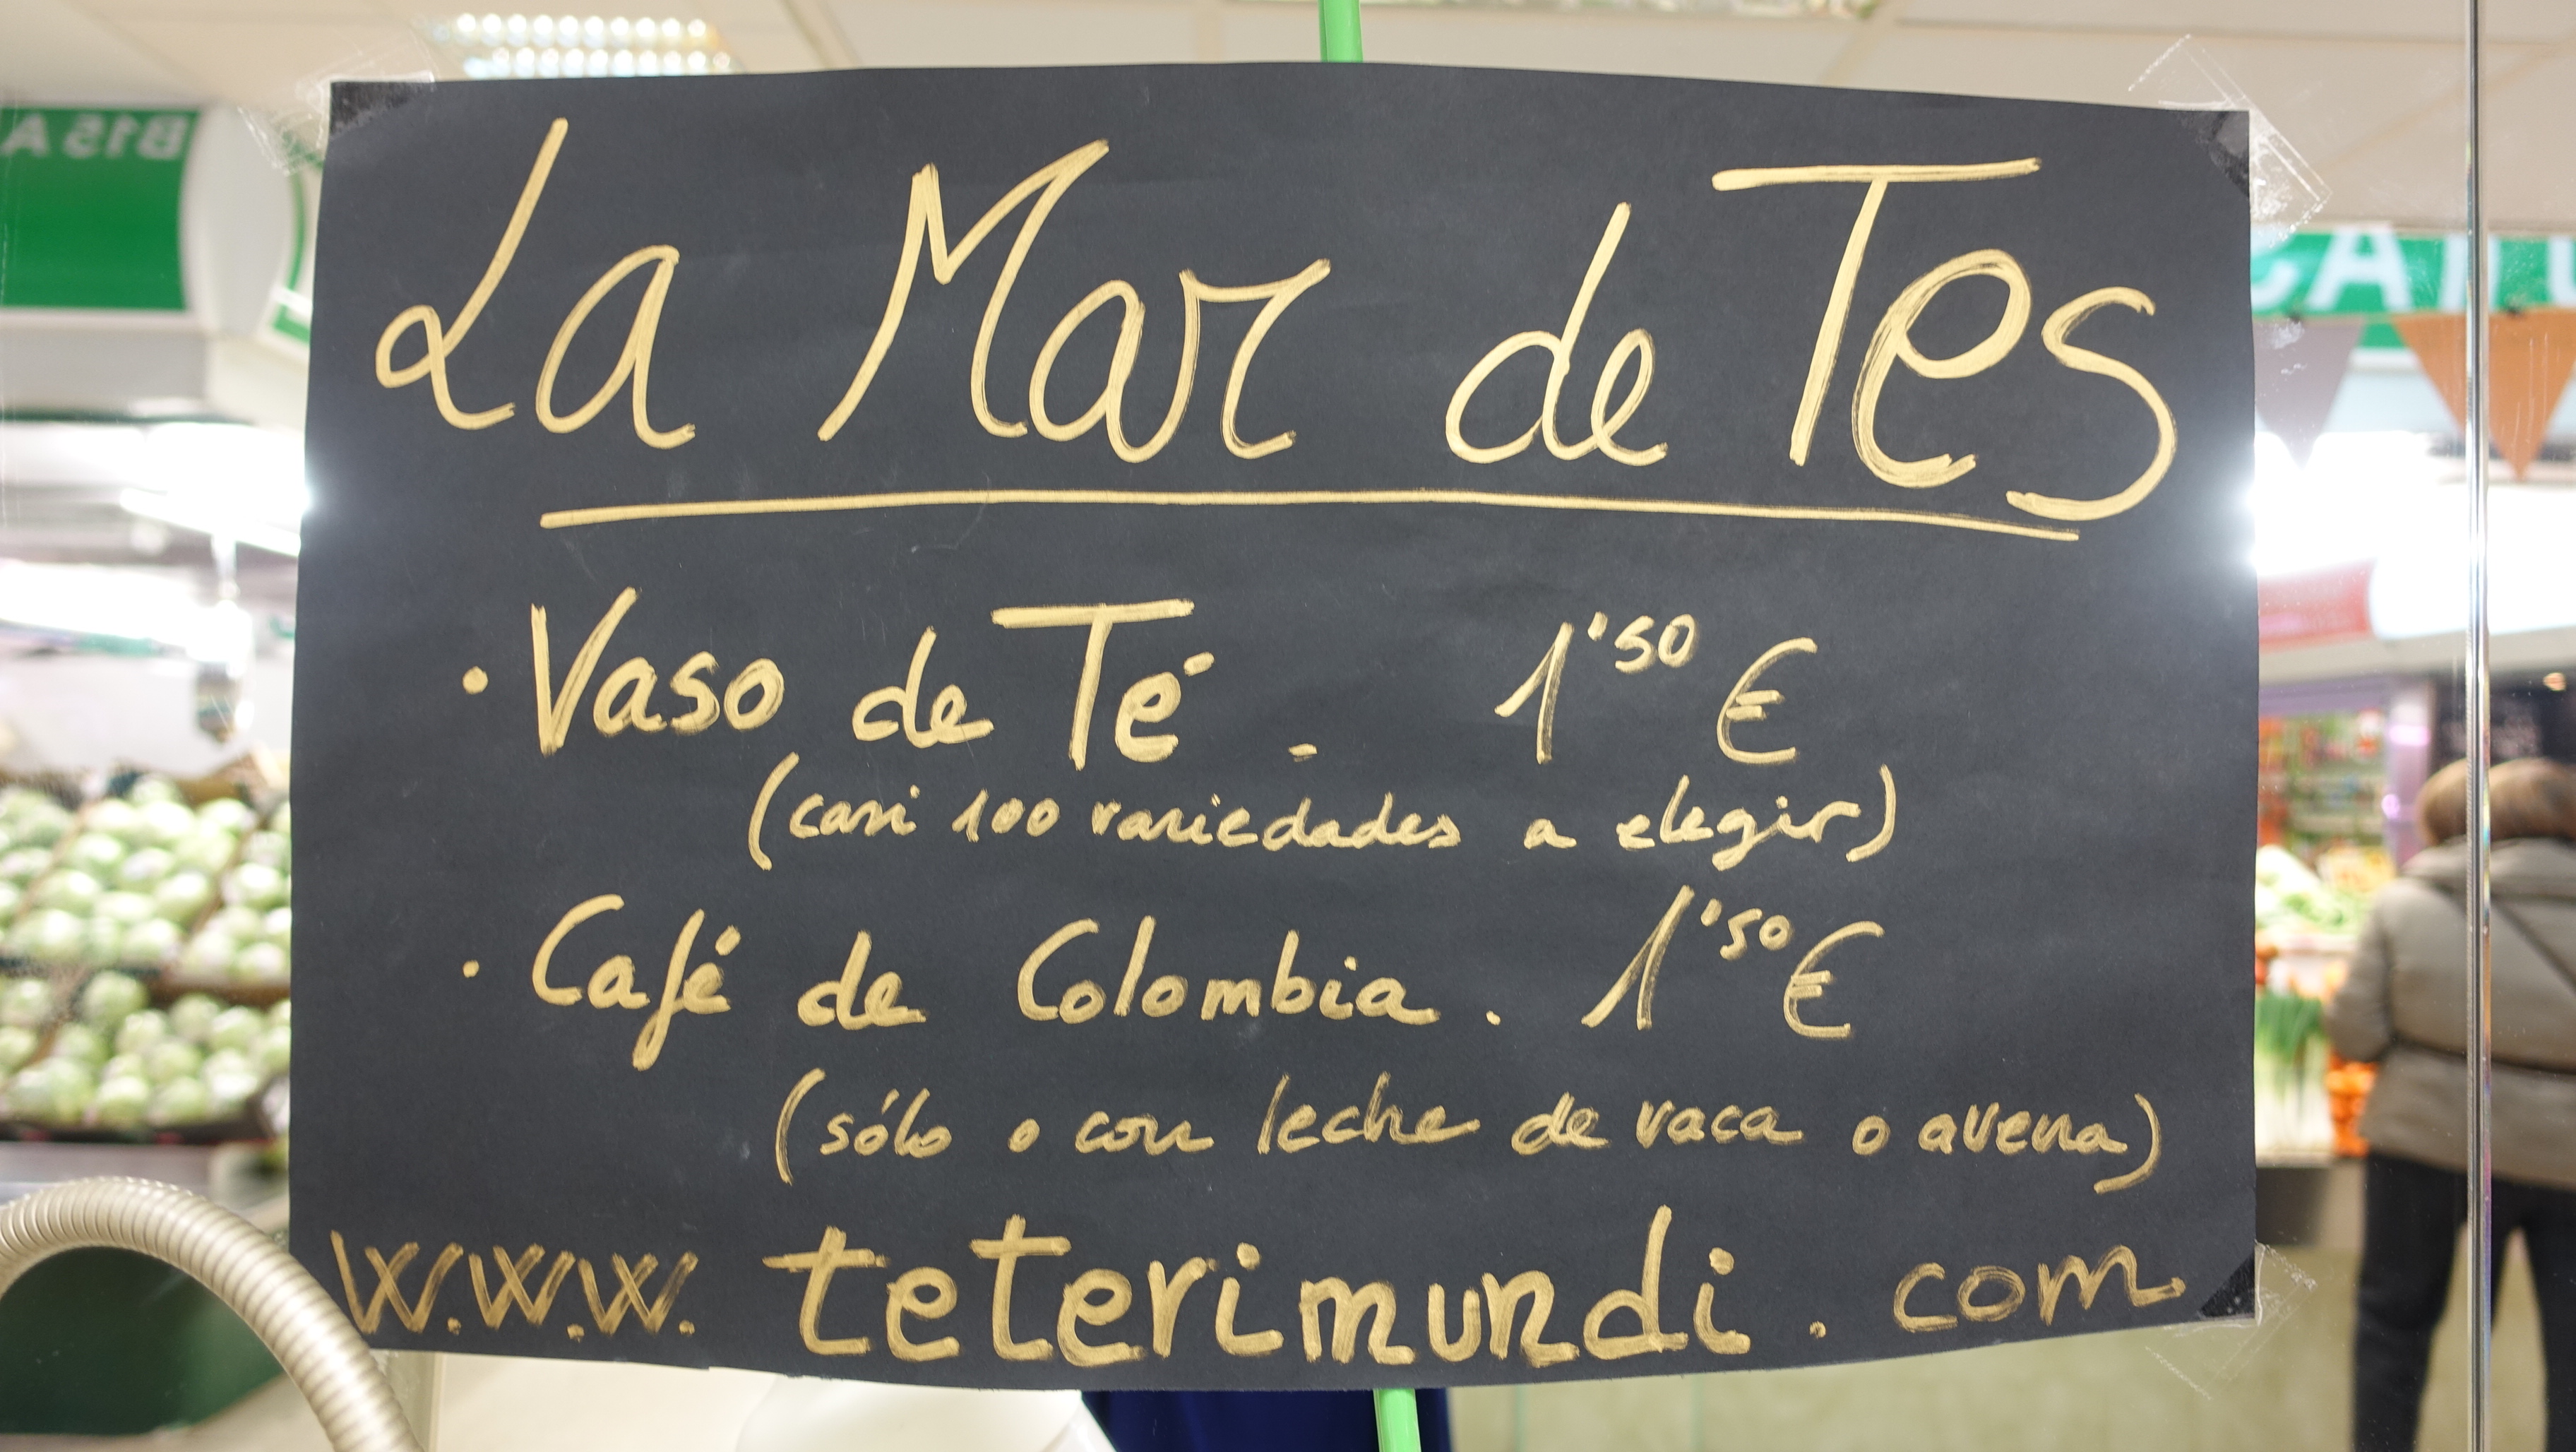 La Mar de Tes
· Vaso de Té . 1'50 €
(casi 100 variedades a elegir)
· Café de Colombia . 1'50 €
(sólo o con leche de vaca o avena)
w.w.w. teterimundi . com
B15A